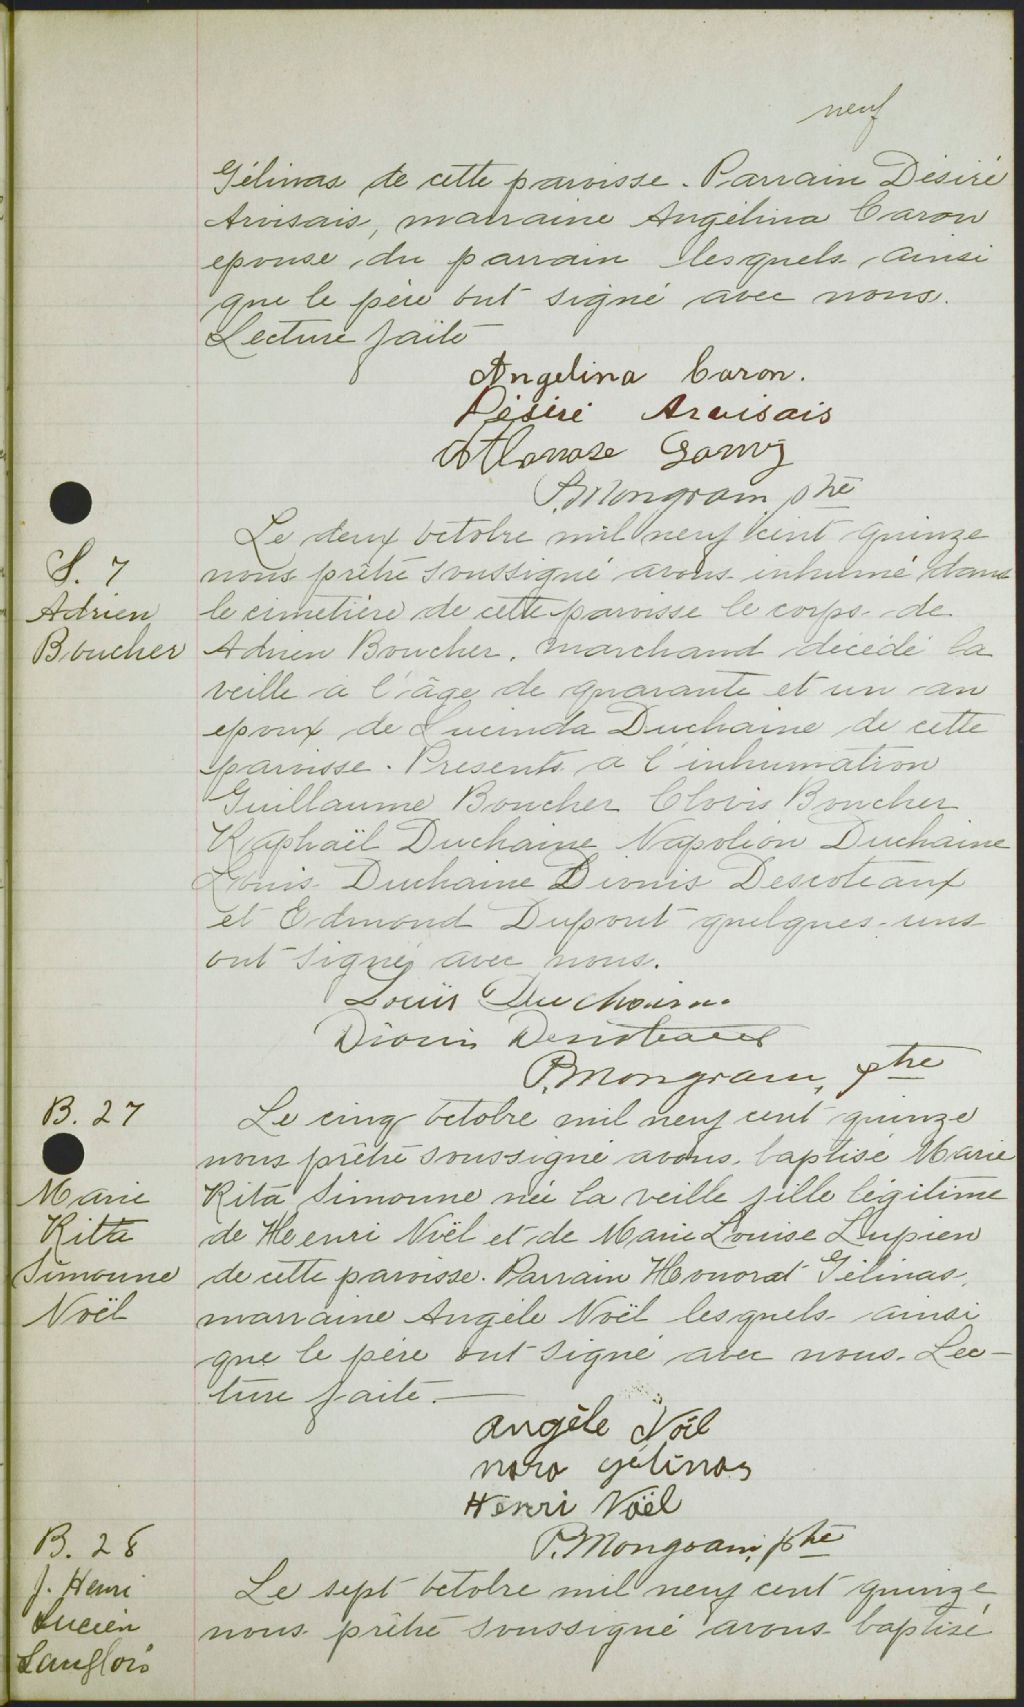 neuf
Gélinas de cette paroisse. Parrain Désiré
Arvisais, marraine Angélina Caron
epouse du parrain lesquels ainsi
que le père ont signé avec nous.
Lecture faite
Angelina Caron.
Désiré Arvisais
P. Mongrain, ptre
S. 7
Adrien
Boucher
Le deux octobre mil neuf cent quinze
nous prêtre soussigné avons inhumé dans
le cimetière de cette paroisse le corps de
Adrien Boucher, marchand décédé la
veille à l'âge de quarante et un an
epoux de Lucinda Duchaine de cette
paroisse. Presents a l'inhumation
Guillaume Boucher Clovis Boucher
Raphaël Duchaine Napoléon Duchaine
Louis Duchaine Dionis Descoteaux
et Edmond Dupont quelques-uns
ont signé avec nous.
Louis Duchaine
Dionis Descoteaux
P. Mongrain, ptre
B. 27
Marie
Ritta
Simonne
Noël
Le cinq octobre mil neuf cent quinze
nous prêtre soussigné avons baptisé Marie
Rita Simonne née la veille fille légitime
de Henri Noël et de Marie Louise Lupien
de cette paroisse. Parrain Honorat Gélinas,
marraine Angèle Noël lesquels ainsi
que le père ont signé avec nous. Lec-
ture faite.
Angèle Noël
nora gélinas
Henri Noël
P. Mongrain, ptre
B. 28
J. Henri
Lucien
Langlois
Le sept octobre mil neuf cent quinze
nous prêtre soussigné avons baptisé